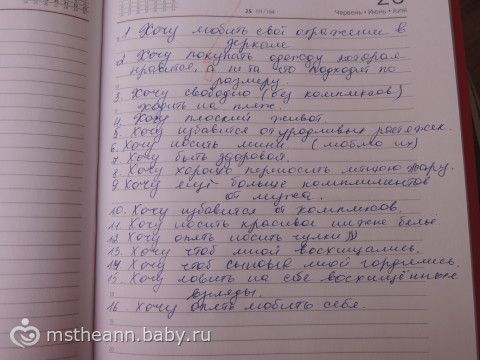 25 175/190
Червень • Июнь • June
1 Хочу любить своё отражение в
зеркале
2. Хочу покупать одежду которая
нравится, а не та что подходит по
размеру.
3. Хочу свободно (без комплексов)
ходить на пляж.
4. Хочу плоский живот.
5. Хочу избавится от уродливых растяжек.
6. Хочу носить мини (люблю их)
7. Хочу быть здоровой.
8. Хочу хорошо переносить летнюю жару.
9. Хочу ещё больше комплиментов
от мужа.
10. Хочу избавится от комплексов.
11. Хочу носить красивое нижнее белье.
12. Хочу опять носить чулки
13. Хочу чтоб мной восхищались.
14 Хочу чтоб сыновья мной гордились.
15. Хочу ловить на себе восхищённые
взгляды.
16. Хочу опять любить себя
mstheann.baby.ru